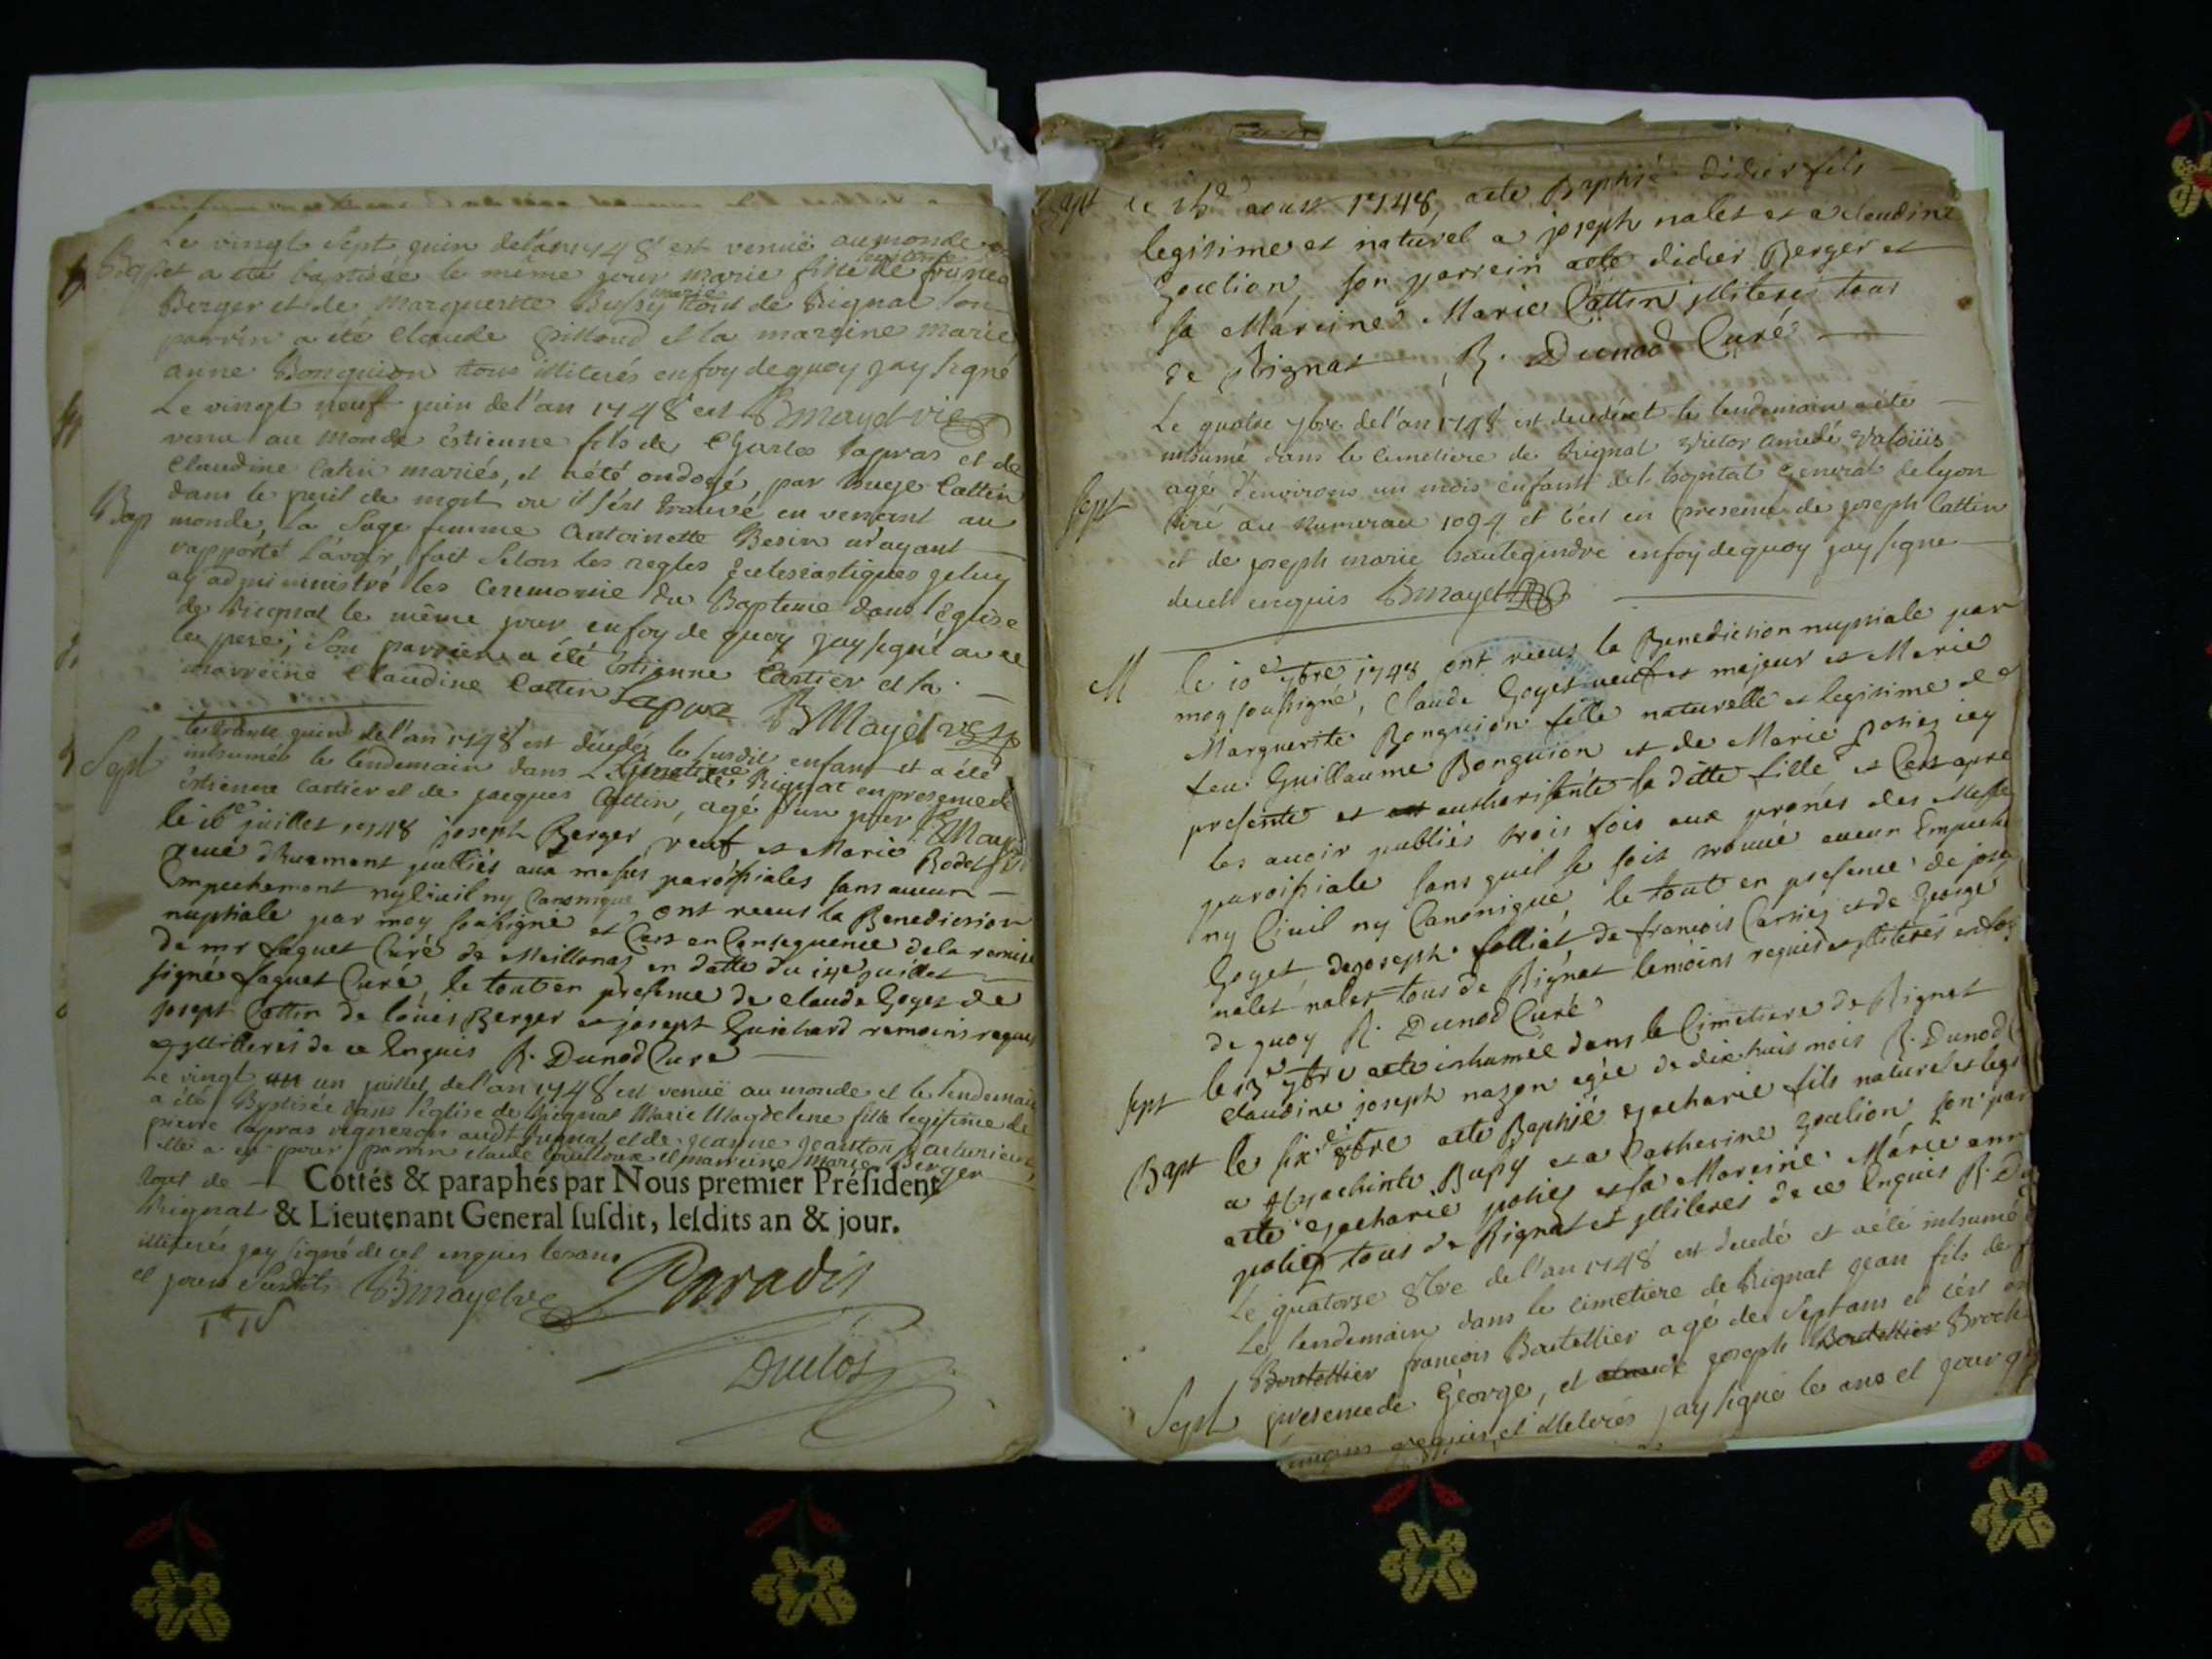 Le vingt Sept juin de l'an 1748 est venuë au monde
Bap et a été baptisée le même jour Marie fille de
Berger et de Marguerite Bussy mariés tout de Rignat Son
parrin a été Claude Pilloud et la marrine Marie
anne Bonguion tous illiterés en foy de quoy jay signé
Le vingt neuf juin de l'an 1748 est BMayet vic
venu au monde éstienne fils de Charles lapras et de
Claudine Catin mariés, et a été ondoyé par Cattin
dans le peril de mort ou il s'est trouvé en venant au
Bap monde, la Sage femme Antoinette Besin m'ayant
rapporté l'avoir fait selons les regles Eclesiastiques je luy
ay administré les Ceremonie du Bapteme dans l'Eglise
de Rignat le même jour en foy de quoy jay signé avec
le pere, Son parrien a été Estienne Cartier et la
marreine Claudine Cattin Lapra BMayet vic
le trente juin de l'an 1748 est décédéz le susdit enfant et a été
Sept inhumée le lendemain dans le Cimetiere de Rignat en presence de
éstienne Cartier et de jacques Cattin, agé d'un jour BMay
le 16e juillet 1748 joseph Berger veuf et Marie Bodet
publiés aux messes paroissiales sans aucun
Empechement ny Civil ny Canonique ont receus la Benediction
nuptiale par moy soussigné et Cest en Consequence de la remise
de mr faguet Curé de Meillonaz en datte du 14e juillet
signé faguet Curé, le tout en presence de Claude Goyet de
joseph Cattin de loüis Berger et joseph Guichard temoins requis
et illiterés de ce Enquis R. Dunod Curé
Le vingt un juillet de l'an 1748 est venuë au monde et le lendemain
a été Baptisée dans l'Eglise de Rignat Marie Magdelene fille legitime de
pierre lapras vigneron audt Rignat et de jeanne
elle a eu pour parrin claude et marreine Marie Berger
tout de Cottés & paraphés par Nous premier Président
Rignat & Lieutenant General susdit, lesdits an & jour.
illiterés jay signé de cet enquis les ans
et jour Susdits BMayet vic Paradis
Duclos
Bapt le août 1748 a ete Baptisé didier fils
legitime et naturel a joseph nalet et a claudine
Goution, son parrein a ete didier Berger et
sa Mareine Marie Cattin illiterés tous
de Rignat R. Dunod Curé
Le quatre 7bre de l'an 1748 est decedé et le lendemain a été
inhumé dans le cimetiere de Rignat victor amedé valoüis
agé d'environs un mois enfant de l'hopital General de lyon
Sept tiré au Numerau 1094 et c'est en presence de joseph Cattin
et de joseph marie hautegindre en foy de quoy jay signe
de cet enquis BMayet
M le 10e 7bre 1748 ont receus la Benediction nuptiale par
moy soussigné, Claude Goyet veuf et majeur et Marie
Marguerite Bonguion fille naturelle et legitime de
feu Guillaume Bonguion et de Marie poncy icy
presente et authorisante sa ditte fille et Cest apres
les avoir publiés trois fois aux prones des Messe
paroissiale sans quil se soit trouué aucun Empeche
ny Ciuil ny Canonique, le tout en presence de jose
Goyet de joseph folliet, de francois Carrier et de George
nalet tous de Rignat temoins requis et illiterés en foy
de quoy R. Dunod Curé
Sept le 13e 7bre a ete inhumée dans le Cimetiere de Rignat
Claudine joseph nazon agée de dix huit mois R. Dunod
Bapt le sixe 8bre a ete Baptisé zacharie fils naturel et legi
a hyachinte Bussy et a Catherine Goution, son par
a ete zacharie et sa Mareine Marie ann
tous de Rignat et illiterés de ce Enquis R. Du
Le quatorse 8bre de l'an 1748 est decedé et a été inhumé
Le lendemain dans le cimetiere de Rignat jean fils de
Boutellier francois Boutellier agé de Sept ans et c'est en
Sept presence de George, et joseph Boutellier Broch
requis et illiterés jay signé les ans et jour q